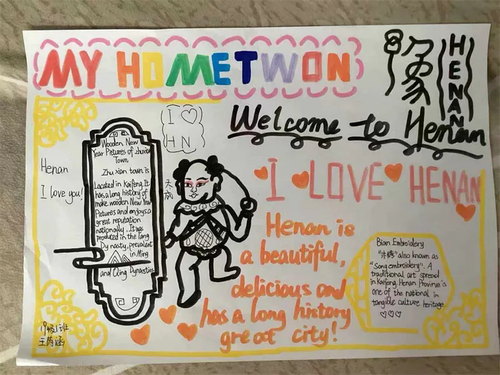 MY HOMETWON
豫
HENAN
Welcome to Henan
I ♡
HN
Henan
I love you!
Wooden New
Year Pictures of Zhuxian
Town
Zhu Xian town is
Located in Kaifeng. It
has a long history of
make wooden New Year
Pictures and enjoys a
great reputation
nationally. It was
produced in the Tang
Dynasty, prevalent
in Ming
and Qing Dynasties
I LOVE HENAN
Henan is
a beautiful,
delicious and
has a long history
great city!
Bian Embroidery
"汴绣" also known as
"Song embroidery". A
traditional art spread
in Kaifeng, Henan Province is
one of the national in
tangible culture heritage.
♡♡♡